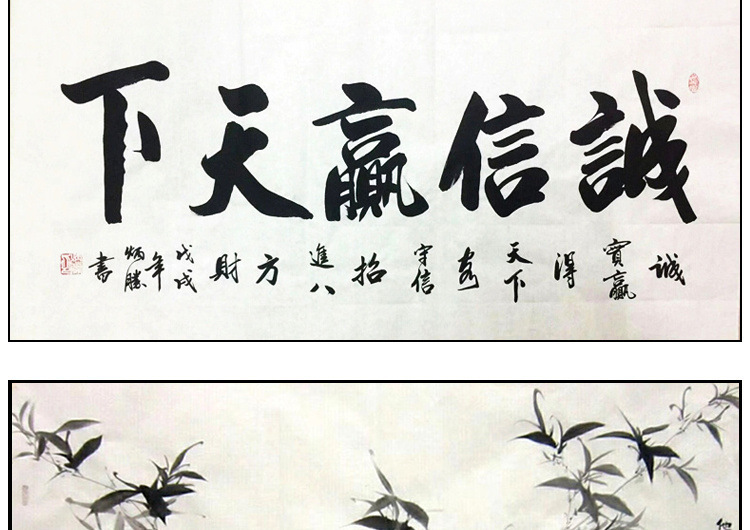 誠信贏天下
誠實贏得天下客守信招進八方財
戊戌年炳勝書